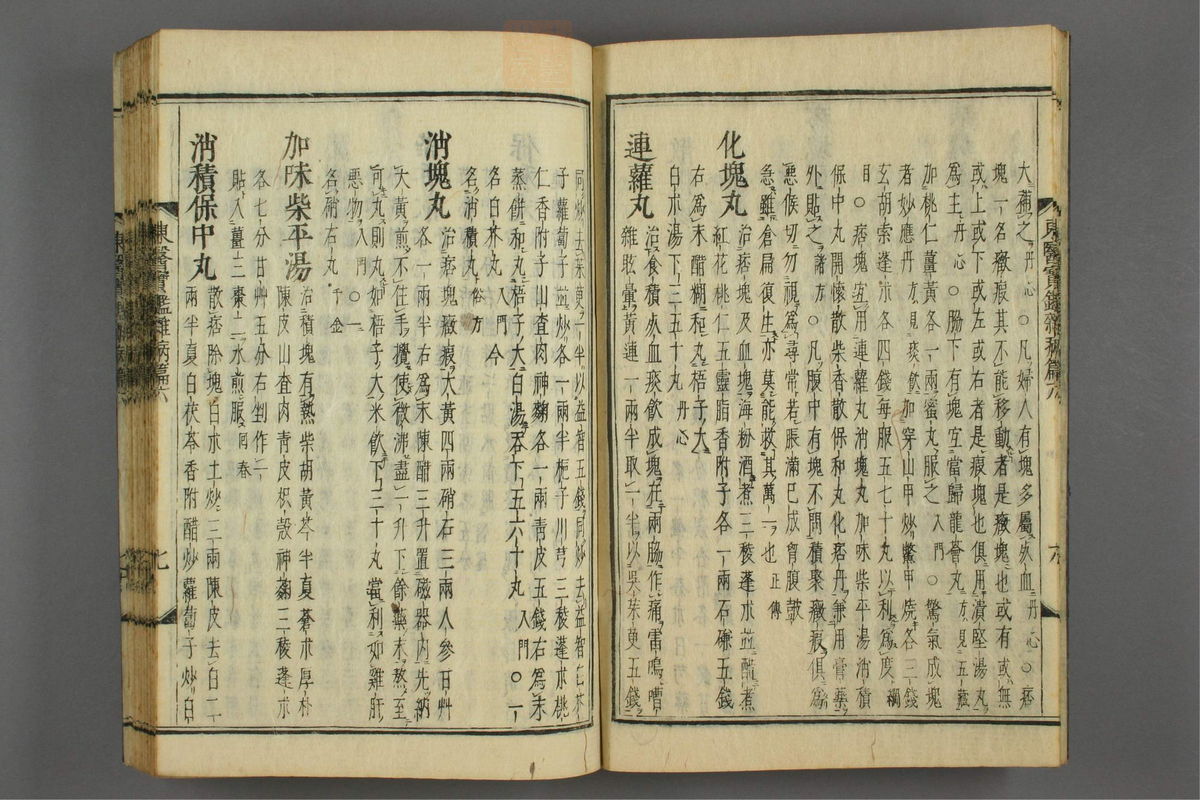 大補之 丹心 ○凡婦人有塊多屬死血 丹心 ○痞
塊一名癥瘕其不能移動者是癥塊也或有或無
或上或下或左或右者是瘕塊也俱用潰堅湯丸
爲主 丹心 ○腸下有塊宜當歸龍薈丸 方見五藏
加桃仁薑黃各一兩蜜丸服之 入門 ○驚氣成塊
者妙應丹 方見痰飮 加穿山甲炒鱉甲燒各三錢
玄胡索蓬朮各四錢每服五七十丸以利爲度 綱
目 ○痞塊宜用連蘿丸消塊丸加味柴平湯消積
保中丸開懷散柴香散保和丸化痞丹兼用膏藥
外貼之 諸方 ○凡腹中有塊不問積聚癥瘕俱爲
惡候切勿視爲尋常若脹滿已成胷腹鼓
急雖倉扁復生亦莫能救其萬一也 正傳
化塊丸 治痞塊及血塊海粉酒煮三稜蓬朮並醋煮
紅花桃仁五靈脂香附子各一兩石䃃五錢
右爲末醋糊和丸梧子大
白朮湯下三五十丸 丹心
連蘿丸 治食積死血痰飮成塊在兩肠作痛雷鳴嘈
雜眩暈黃連一兩半取一半以吳茱萸五錢
同炒去茱萸一半以益智五錢同炒去益智白芥
子蘿蔔子並炒各一兩半梔子川芎三稜蓬朮桃
仁香附子山査肉神麴各一兩靑皮五錢右爲末
蒸餠和丸梧子大白湯呑下五六十丸 入門 ○一
名白芥丸 入門 今
名消積丸 俗方
消塊丸 治痞塊癥瘕大黃四兩硝石三兩人參甘艸
各一兩半右爲末陳醋三升置磁器內先納
大黃煎不住手攪使微沸盡一升下餘藥末熬至
可丸則丸如梧子大米飮下三十丸當利如雞肝
惡物 入門 ○一
名硝石丸 千金
加味柴平湯 治積塊有熱柴胡黃芩半夏蒼朮厚朴
陳皮山査肉靑皮枳殼神麴三稜蓬朮
各七分甘艸五分右剉作一
貼入薑三棗二水煎服 回春
消積保中丸 散痞除塊白朮土炒三兩陳皮去白二
兩半夏白茯苓香附醋炒蘿蔔子炒白
東醫寶鑑雜病篇六
六
東醫寶鑑雜病篇六
七